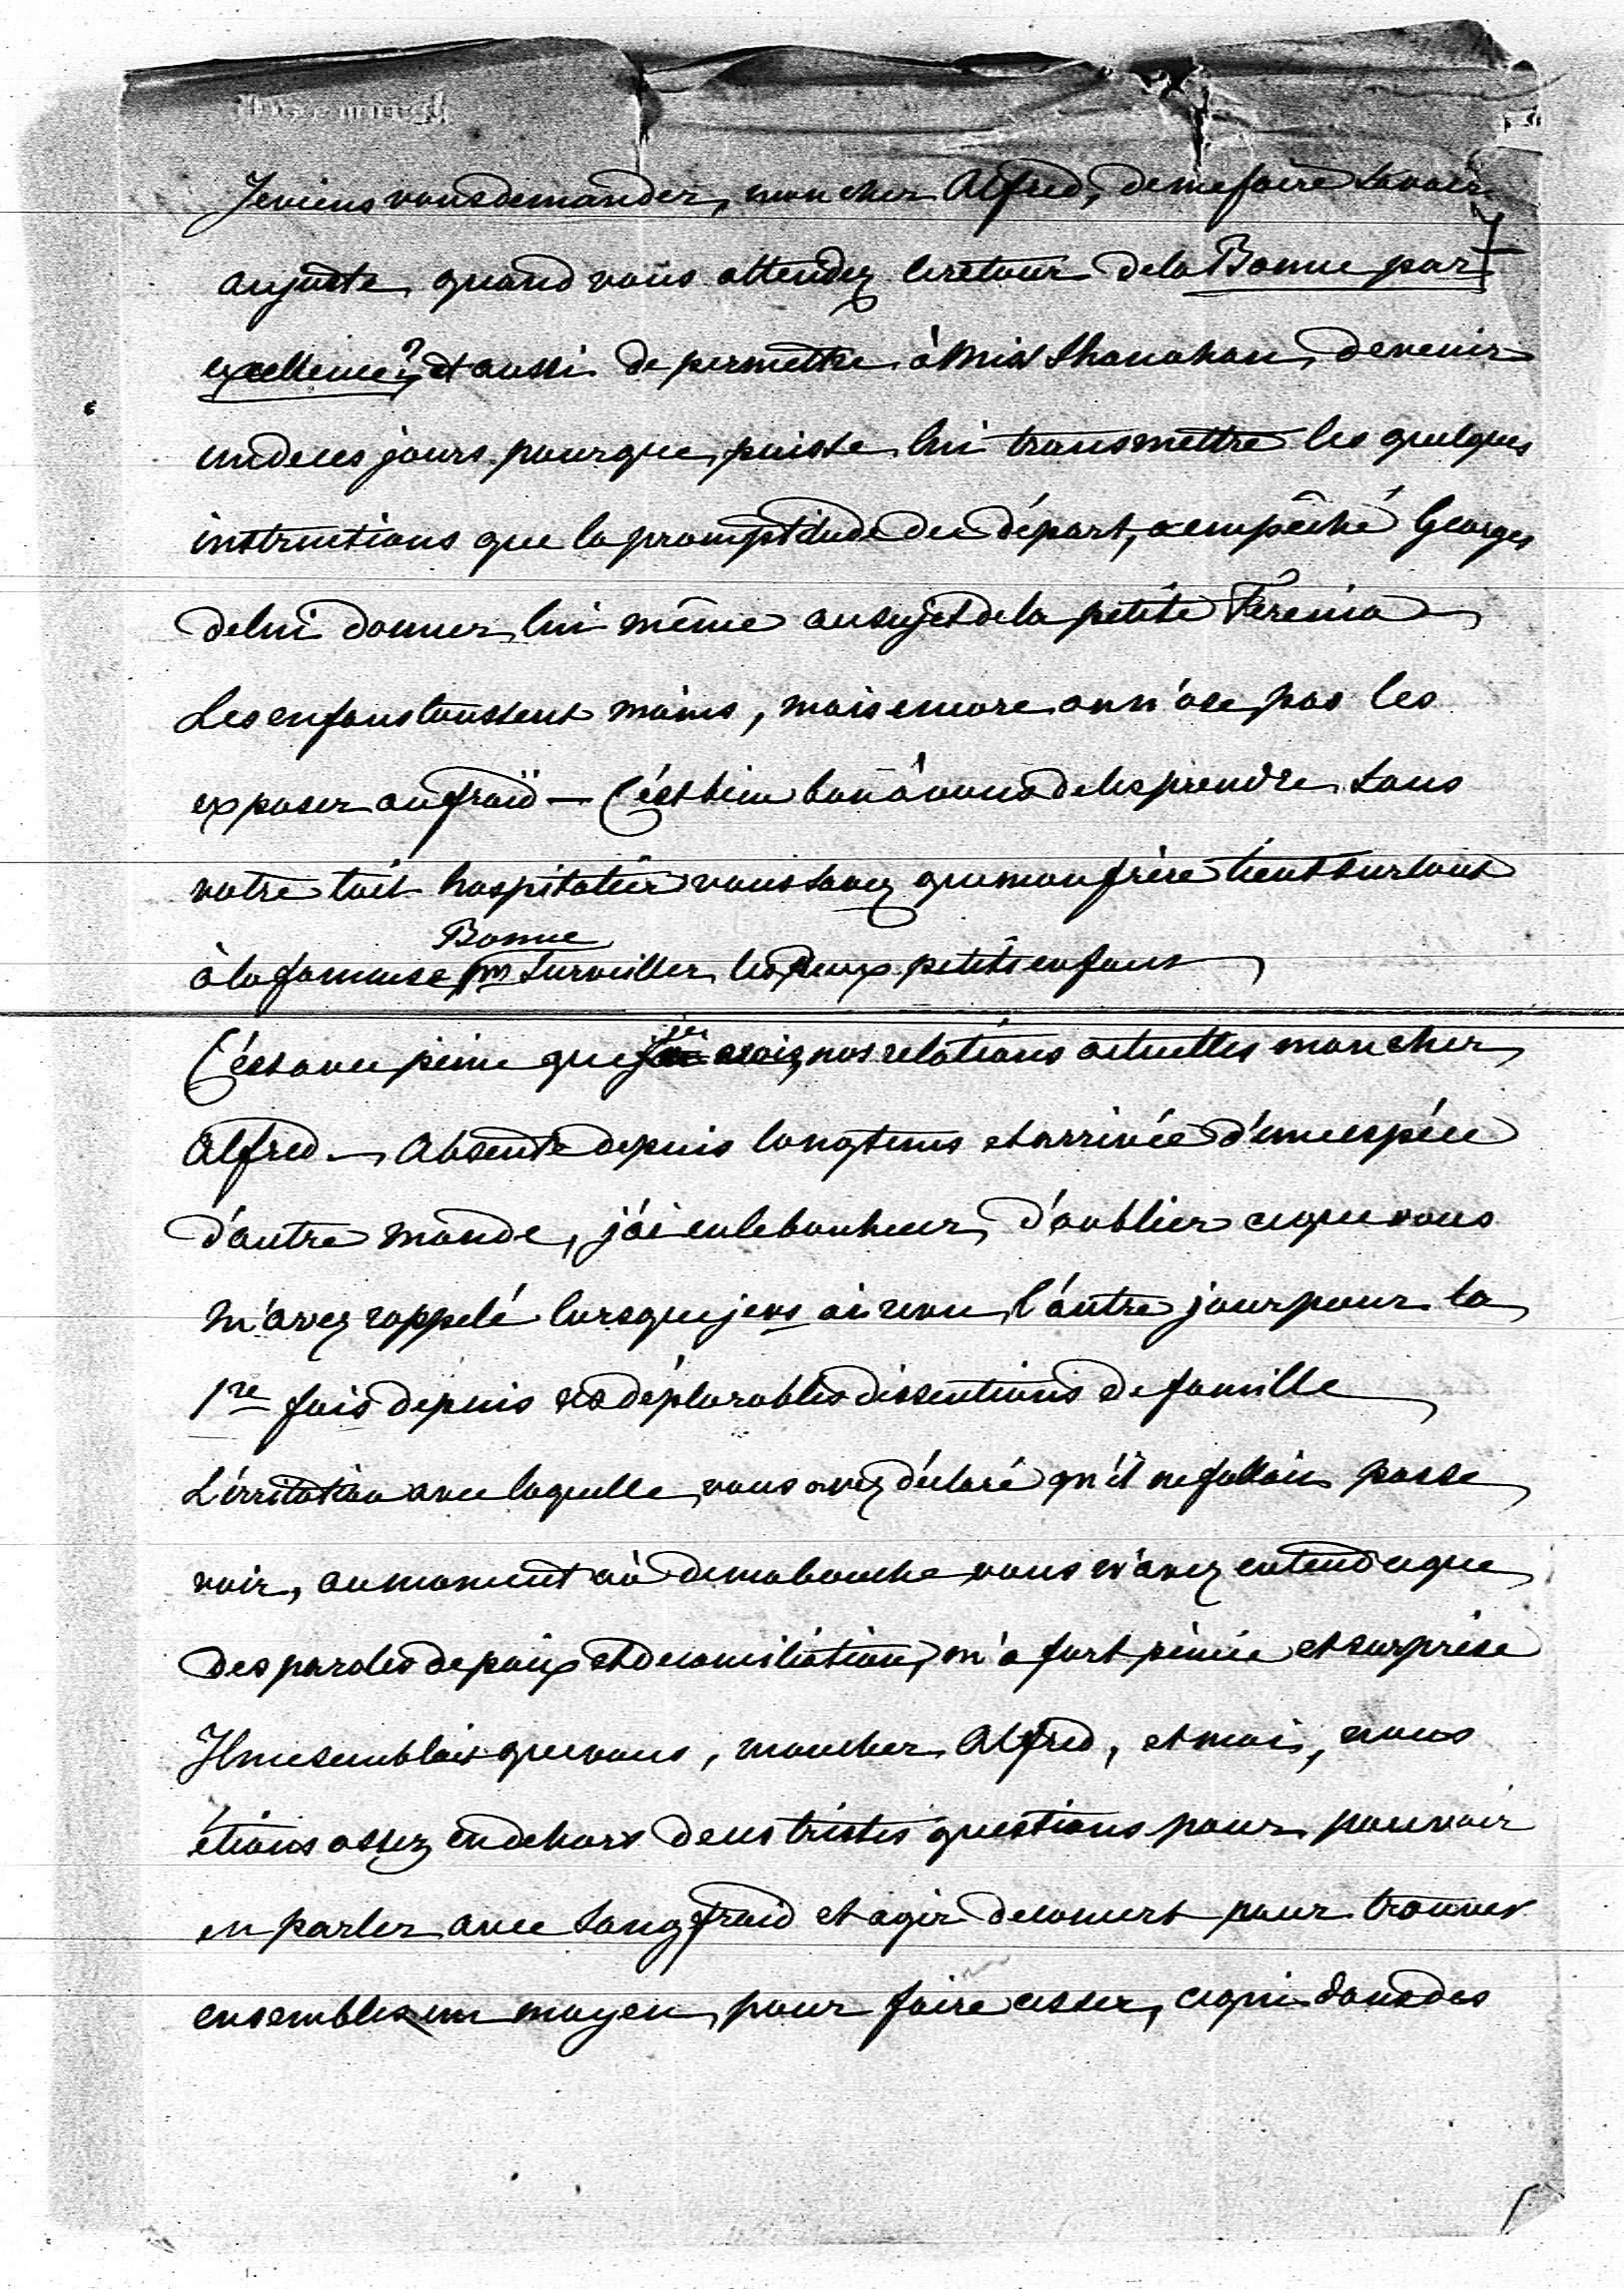 Je viens vous demander, mon cher Alfred, de me faire savoir
au juste, quand vous attendez le retour de la Bonne par
excellence? et aussi de permettre à Miss Shanahan, de venir
un de ces jours pour que puisse lui transmettre les quelques
instructions que la promptitude du départ, a empêché Georges
de lui donner lui même au sujet de la petite
Les enfans toussent moins, mais encore on n'ose pas les
exposer au froid — C'est bien bon à vous de les prendre sous
votre toit hospitalier vous savez que mon frère tient surtout
à la fameuse Bonne pr surveiller les deux petits enfans
C'est avec peine que je vois, nos relations actuelles mon cher
Alfred — Absente depuis longtems et arrivée d'une espéce
d'autre monde, j'ai eu le bonheur, d'oublier ce que vous
m'avez rappelé lorsque je vs ai revu, l'autre jour pour la
1re fois depuis ces déplorables dissentions de famille
L'irritation avec laquelle, vous avez déclaré qu'il ne fallait pas se
voir, au moment où de ma bouche vous n'avez entendu que
des paroles de paix et de conciliation, m'a fort peinée et surprise
Il me semblait que vous, mon cher Alfred, et moi, nous
étions assez en dehors de ces tristes questions pour pouvoir
en parler avec sang froid et agir de concert pour trouver
ensembles un moyen, pour faire cesser, ce qui dans des